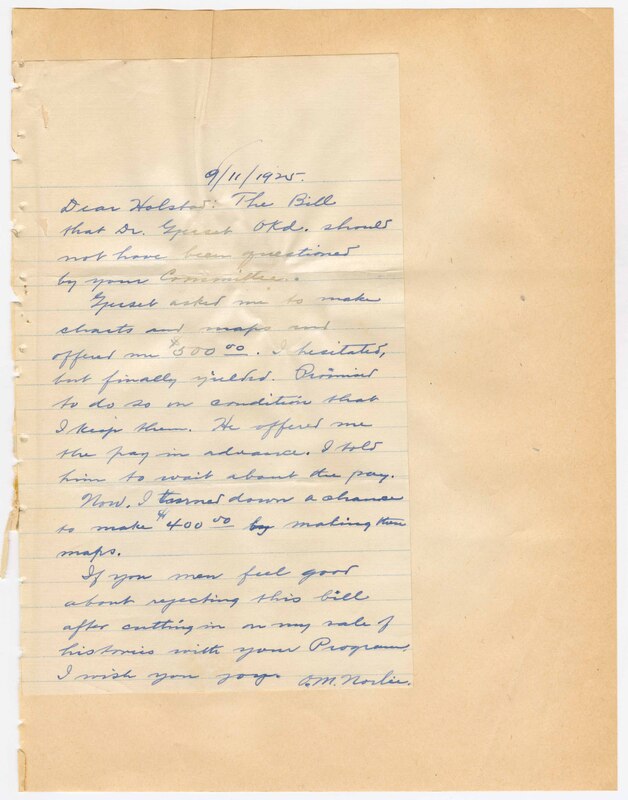 9/11/1925.
Dear Holstad: The Bill
that Dr. Gjerset OKd. should
not have been questioned
by your Committee.
Gjerset asked me to make
charts and maps and
offered me $500 00. I hesitated,
but finally yielded. Promised
to do so on condition that
I keep them. He offered me
the pay in advance. I told
him to wait about the pay.
Now, I turned down a chance
to make $400 00 by making these
maps.
If you men feel good
about rejecting this bill
after cutting in on my sale of
histories with your Program,
I wish you joy. O.M. Norlie.